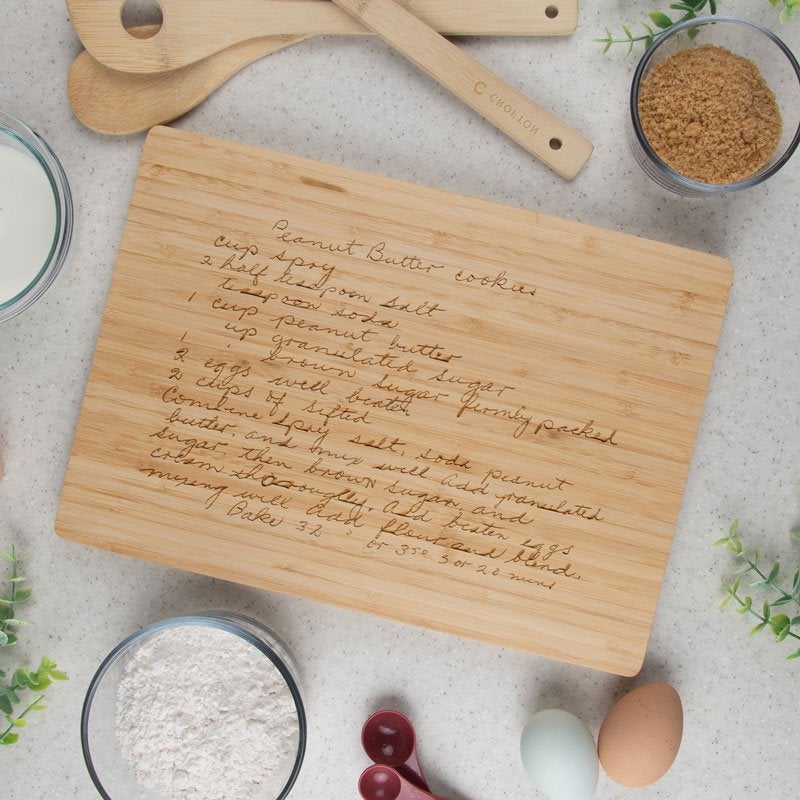 CROFTON
Peanut Butter cookies
cup spry
2 half teaspoon salt
teaspoon soda
1 cup peanut butter
up granulated sugar
1 brown sugar firmly packed
2 eggs well beaten
2 cups of sifted
Combine spry salt, soda peanut
butter, and mix well add granulated
sugar, then brown sugar, and
cream thoroughly. Add beaten eggs
mixing well add flour and blend.
Bake 32 or 350 20 mins